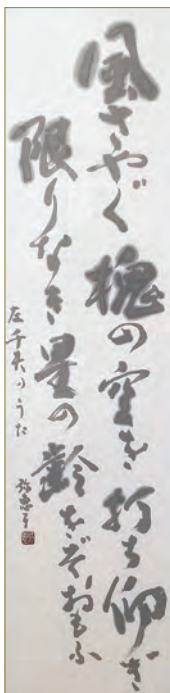 風さやぐ槐の空を打ち仰ぎ
限りなき星の齢をぞおもふ
左千夫のうた